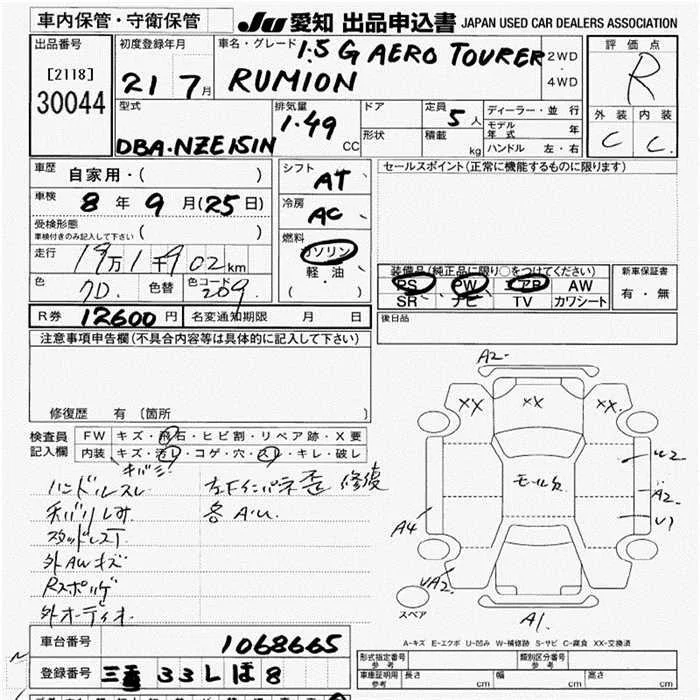 車内保管・守衛保管
JU 愛知 出品申込書 JAPAN USED CAR DEALERS ASSOCIATION
出品番号
[2118]
30044
初度登録年月
21 7月
車名・グレード
1.5 G AERO TOURER
RUMION
2WD
・
4WD
評価点
R
外装 内装
C C
型式
DBA・NZE151N
排気量
1.49 CC
ドア
形状
定員 5人
積載 kg
ディーラー・並行
モデル年式 年
ハンドル 左・右
車歴 自家用・( )
車検 8年9月(25日)
受検形態
車検付きのみ記入して下さい ( )
走行 19万1千902km
色 7D. 色替 色コード 209
シフト AT
冷房 AC
燃料
ガソリン
軽・油
( ・ )
セールスポイント(正常に機能するものに限ります)
装備品(純正品に限り○をつけてください)
PS PW エアB AW
SR ナビ TV カワシート
新車保証書
有・無
R券 12600円 名変通知期限 月 日
後日品
注意事項申告欄(不具合内容等は具体的に記入して下さい)
修復歴 有 (箇所 )
検査員
記入欄
FW キズ・飛石・ヒビ割・リペア跡・X要
内装 キズ・汚レ・コゲ・穴・スレ・キレ・破レ
ハンドルスレ
スタッドレス
外AWキズ
外オーディオ
歪 修復
各A.U.
A2
XX
XX
XX
U2
A2
U1
A4
UA2
A1
スペア
A-キズ E-エクボ U-凹み W-補修跡 S-サビ C-腐食 XX-交換済
車台番号 1068665
登録番号 三重 33L ほ 8
形式指定番号 参考
類別区分番号 参考
車庫証明用 参考 長さ cm 幅 cm 高さ cm